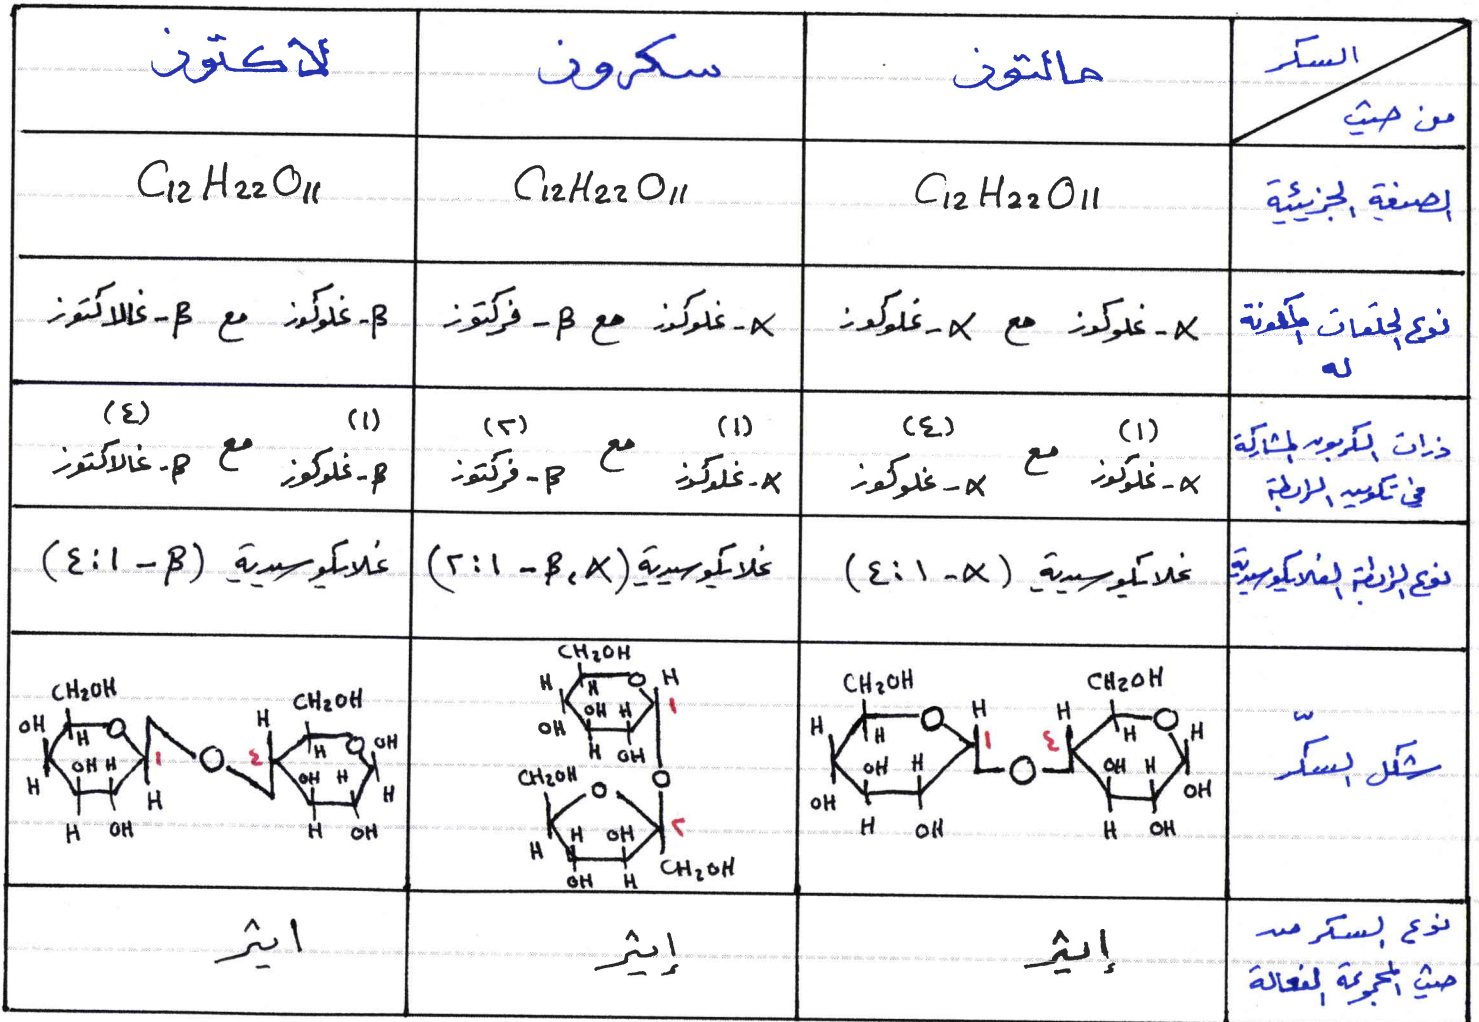 السكر
من حيث
مالتوز
سكروز
لاكتوز
الصيغة الجزيئية
C12H22O11
C12H22O11
C12H22O11
نوع الحلقات المكونة
له
α-غلوكوز مع α-غلوكوز
α-غلوكوز مع β-فركتوز
β-غلوكوز مع β-غالاكتوز
ذرات الكربون المشاركة
في تكوين الرابطة
(١) (٤)
α-غلوكوز مع α-غلوكوز
(١) (٢)
α-غلوكوز مع β-فركتوز
(١) (٤)
β-غلوكوز مع β-غالاكتوز
نوع الرابطة الغلايكوسيدية
غلايكوسيدية (α-١:٤)
غلايكوسيدية (α،β-١:٢)
غلايكوسيدية (β-١:٤)
شكل السكّر
CH2OH CH2OH
H O H H O H
H ١ ٤ H
OH H O OH H
OH OH
H OH H OH
CH2OH
H H O H
١
OH H
OH H OH
CH2OH O
O
٢
H H OH
OH H CH2OH
CH2OH CH2OH
OH O H O OH
H ١ ٤ H
OH H O OH H
H H H
H OH H OH
نوع السكر من
حيث المجموعة الفعالة
إيثر
إيثر
ايثر